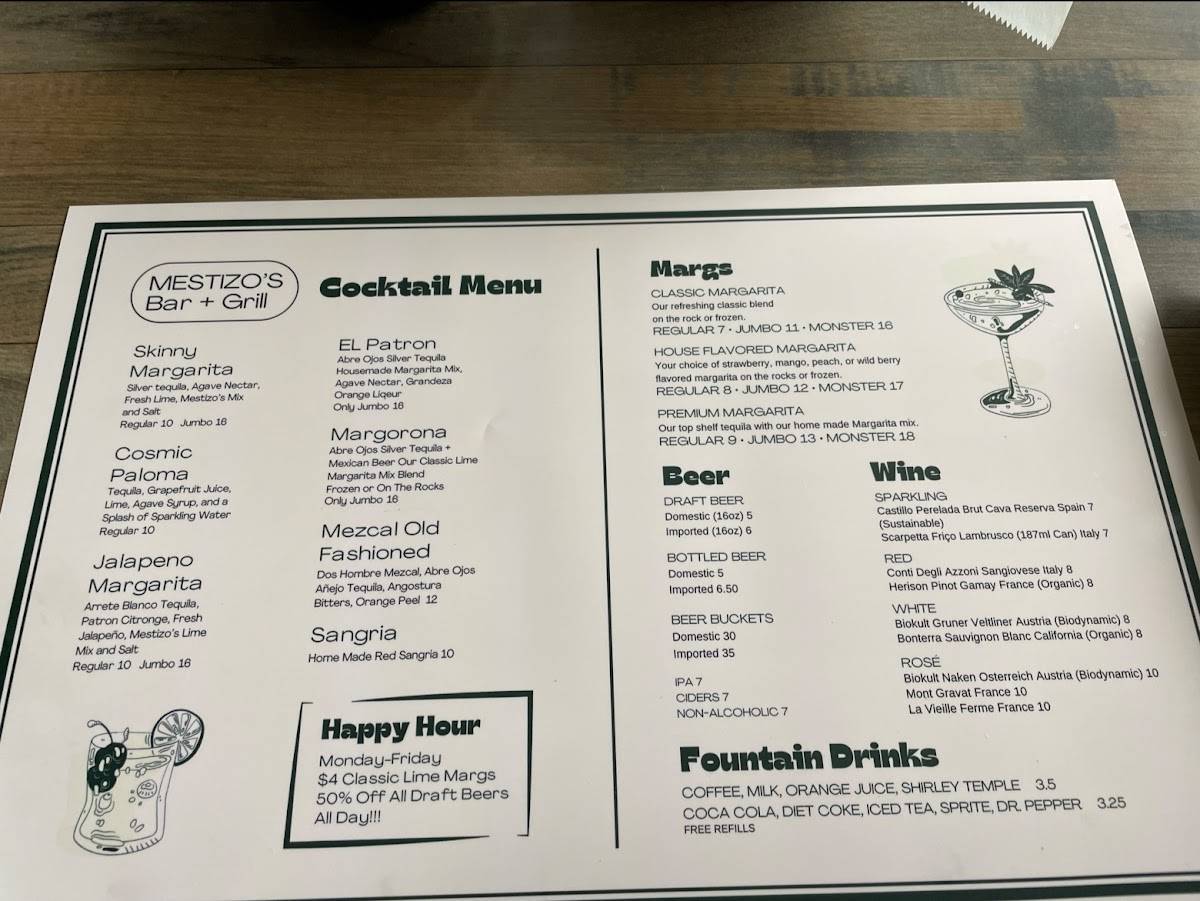 MESTIZO'S
Bar + Grill
Cocktail Menu
Skinny
Margarita
Silver tequila, Agave Nectar,
Fresh Lime, Mestizo's Mix
and Salt
Regular 10 Jumbo 16
Cosmic
Paloma
Tequila, Grapefruit Juice,
Lime, Agave Syrup, and a
Splash of Sparkling Water
Regular 10
Jalapeno
Margarita
Arrete Blanco Tequila,
Patron Citronge, Fresh
Jalapeño, Mestizo's Lime
Mix and Salt
Regular 10 Jumbo 16
EL Patron
Abre Ojos Silver Tequila
Housemade Margarita Mix,
Agave Nectar, Grandeza
Orange Liqeur
Only Jumbo 16
Margorona
Abre Ojos Silver Tequila +
Mexican Beer Our Classic Lime
Margarita Mix Blend
Frozen or On The Rocks
Only Jumbo 16
Mezcal Old
Fashioned
Dos Hombre Mezcal, Abre Ojos
Añejo Tequila, Angostura
Bitters, Orange Peel 12
Sangria
Home Made Red Sangria 10
Happy Hour
Monday-Friday
$4 Classic Lime Margs
50% Off All Draft Beers
All Day!!!
Margs
CLASSIC MARGARITA
Our refreshing classic blend
on the rock or frozen.
REGULAR 7 • JUMBO 11 • MONSTER 16
HOUSE FLAVORED MARGARITA
Your choice of strawberry, mango, peach, or wild berry
flavored margarita on the rocks or frozen.
REGULAR 8 • JUMBO 12 • MONSTER 17
PREMIUM MARGARITA
Our top shelf tequila with our home made Margarita mix.
REGULAR 9 • JUMBO 13 • MONSTER 18
Beer
DRAFT BEER
Domestic (16oz) 5
Imported (16oz) 6
BOTTLED BEER
Domestic 5
Imported 6.50
BEER BUCKETS
Domestic 30
Imported 35
IPA 7
CIDERS 7
NON-ALCOHOLIC 7
Wine
SPARKLING
Castillo Perelada Brut Cava Reserva Spain 7
(Sustainable)
Scarpetta Friço Lambrusco (187ml Can) Italy 7
RED
Conti Degli Azzoni Sangiovese Italy 8
Herison Pinot Gamay France (Organic) 8
WHITE
Biokult Gruner Veltliner Austria (Biodynamic) 8
Bonterra Sauvignon Blanc California (Organic) 8
ROSÉ
Biokult Naken Osterreich Austria (Biodynamic) 10
Mont Gravat France 10
La Vieille Ferme France 10
Fountain Drinks
COFFEE, MILK, ORANGE JUICE, SHIRLEY TEMPLE 3.5
COCA COLA, DIET COKE, ICED TEA, SPRITE, DR. PEPPER 3.25
FREE REFILLS